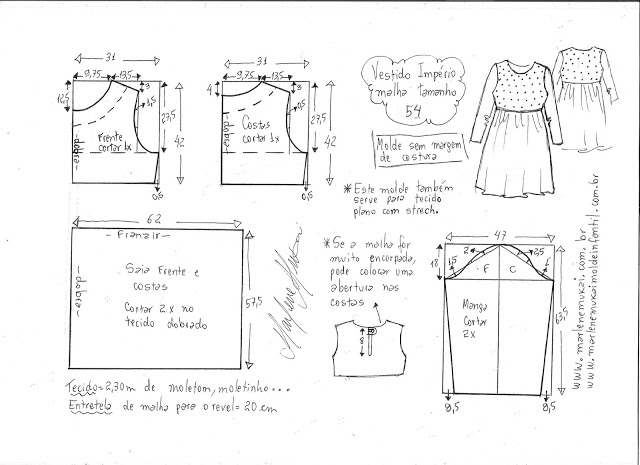 31
9,75 13,5
3
12,5
1,5
27,5
42
Frente
cortar 1x
-dobra-
0,5
31
9,75 13,5
3
4
0,5
27,5
42
Costas
cortar 1x
-dobra-
0,5
Vestido Império
malha tamanho
54
Molde sem margem
de costura
*Este molde também
serve para tecido
plano com strech.
62
- Franzir -
-dobra-
Saia Frente e
costas
Cortar 2x no
tecido dobrado
57,5
*Se a malha for
muito encorpada,
pode colocar uma
abertura nas
costas
8
47
18
2
2,5
1,5
1
F C
Manga
Cortar
2x
63,5
8,5
8,5
www.marlenemukai.com.br
www.marlenemukaimoldeinfantil.com.br
Tecido=2,30m de moletom, moletinho...
Entretela de malha para o revel=20 cm